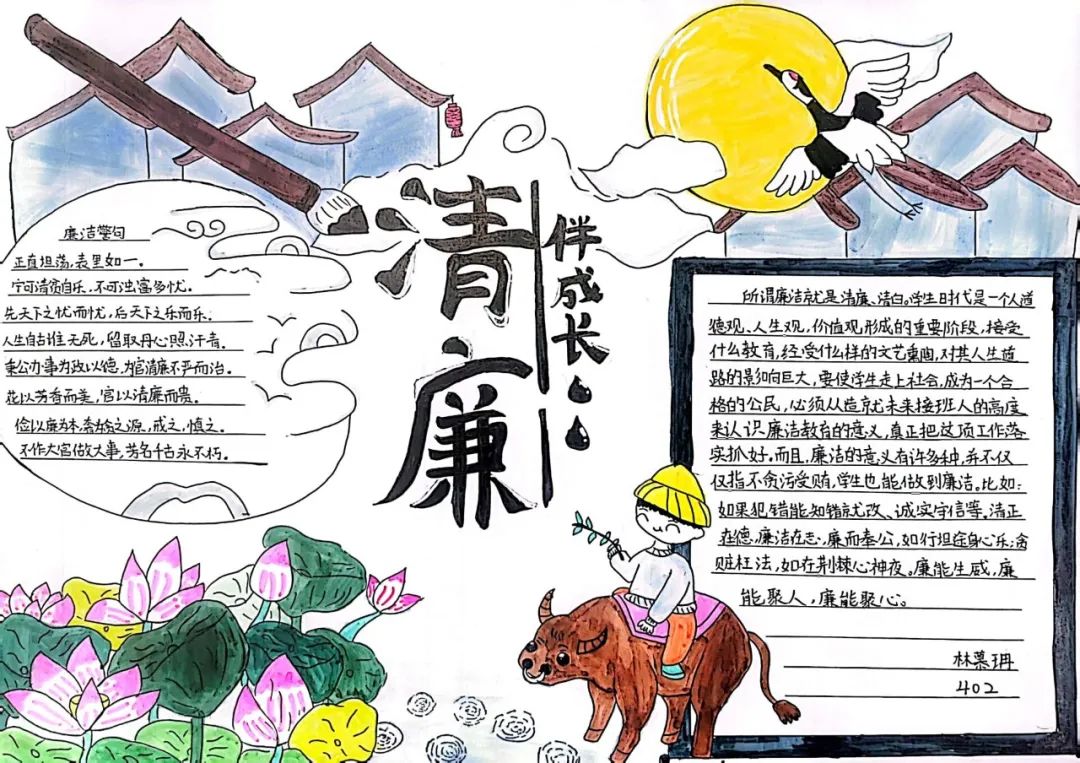 清廉
伴成长
廉洁警句
正直坦荡，表里如一。
宁可清贫自乐，不可浊富多忧。
先天下之忧而忧，后天下之乐而乐。
人生自古谁无死，留取丹心照汗青。
秉公办事为政以德，为官清廉不严而治。
花以芳香而美，官以清廉而贵。
俭以廉为本，奢始之源，戒之，慎之。
不作大官做大事，芳名千古永不朽。
所谓廉洁就是清廉、洁白。学生时代是一个人道
德观、人生观，价值观形成的重要阶段，接受
什么教育，经受什么样的文艺熏陶，对其人生道
路的影响巨大，要使学生走上社会，成为一个合
格的公民，必须从造就未来接班人的高度
来认识廉洁教育的意义，真正把这项工作落
实抓好。而且，廉洁的意义有许多种，并不仅
仅指不贪污受贿，学生也能做到廉洁。比如：
如果犯错能知错就改、诚实守信等。清正
在德，廉洁在志，廉而奉公，如行坦途身心乐；贪
赃枉法，如在荆棘心神夜。廉能生威，廉
能聚人，廉能聚心。
林慕珃
402